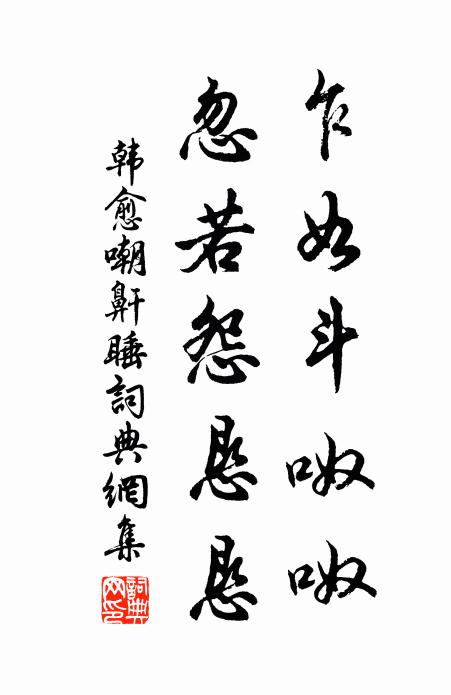 乍如斗呶呶
忽若怨恳恳
韓愈嘲鼾睡詞典網集
詞典
网印